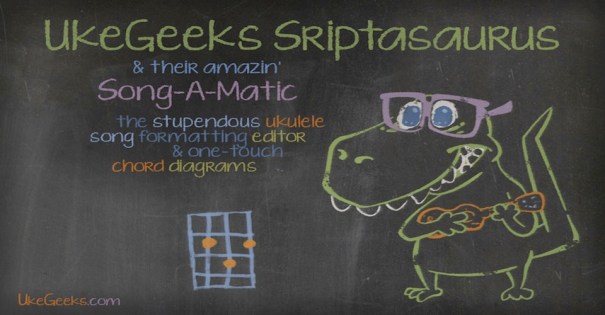 UkeGeeks Sriptasaurus
& their amazin'
Song-A-Matic
the stupendous ukulele
song formatting editor
& one-touch
chord diagrams
UkeGeeks.com